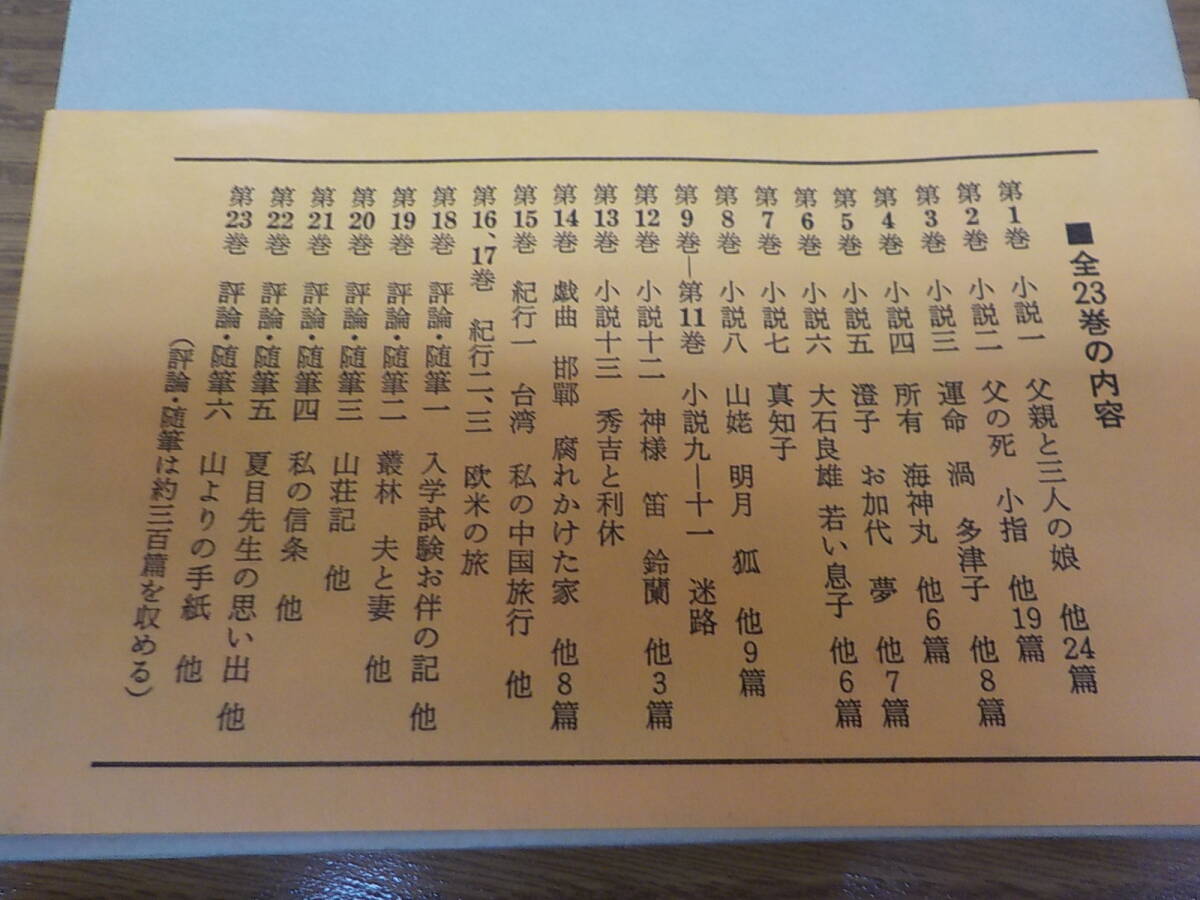 ■全23巻の内容
第1巻 小説一 父親と三人の娘 他24篇
第2巻 小説二 父の死 小指 他19篇
第3巻 小説三 運命 渦 多津子 他8篇
第4巻 小説四 所有 海神丸 他6篇
第5巻 小説五 澄子 お加代 夢 他7篇
第6巻 小説六 大石良雄 若い息子 他6篇
第7巻 小説七 真知子
第8巻 小説八 山姥 明月 狐 他9篇
第9巻―第11巻 小説九―十一 迷路
第12巻 小説十二 神様 笛 鈴蘭 他3篇
第13巻 小説十三 秀吉と利休
第14巻 戯曲 邯鄲 腐れかけた家 他8篇
第15巻 紀行一 台湾 私の中国旅行 他
第16、17巻 紀行二、三 欧米の旅
第18巻 評論・随筆一 入学試験お伴の記 他
第19巻 評論・随筆二 叢林 夫と妻 他
第20巻 評論・随筆三 山荘記 他
第21巻 評論・随筆四 私の信条 他
第22巻 評論・随筆五 夏目先生の思い出 他
第23巻 評論・随筆六 山よりの手紙 他
（評論・随筆は約三百篇を収める）